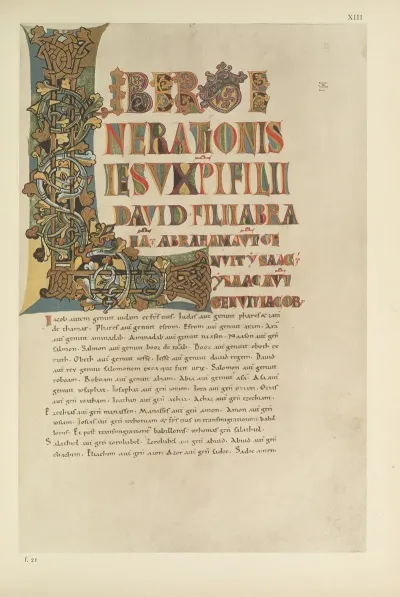 XIII
LIBER GE
NERATIONIS
IESU XPI FILII
DAVID · FILII ABRA
HA · ABRAHAM AUT GE
NUIT YSAAC
YSAAC AUT
GENUIT IACOB
Iacob autem genuit iudam et fres eius. Iudas aut genuit phares et zara
de thamar. Phares aut genuit esrom. Esrom aut genuit aram. Ara
aut genuit aminadab. Aminadab aut genuit naason. Naason aut gen
salmon. Salmon aut genuit booz de raab. Booz aut genuit obeth ex
ruth. Obeth aut genuit iesse. Iesse aut genuit david regem. David
aut rex genuit salomonem ex ea que fuit urie. Salomon aut genuit
roboam. Roboam aut genuit abiam. Abia aut genuit asa. Asa aut
genuit iosaphat. Iosaphat aut gen ioram. Ioram aut gen oziam. Ozias
aut gen ioatham. Ioathan aut gen achaz. Achaz aut gen ezechiam.
Ezechias aut gen manassen. Manasses aut gen amon. Amon aut gen
iosiam. Iosias aut gen iechoniam et fres eius in transmigratione babi
lonis. Et post transmigratione babillonis. iechonias gen salathiel.
Salathiel aut gen zorobabel. Zorobabel aut gen abiud. Abiud aut gen
eliachim. Eliachim aut gen azor. Azor aut gen sadoc. Sadoc autem
f. 21